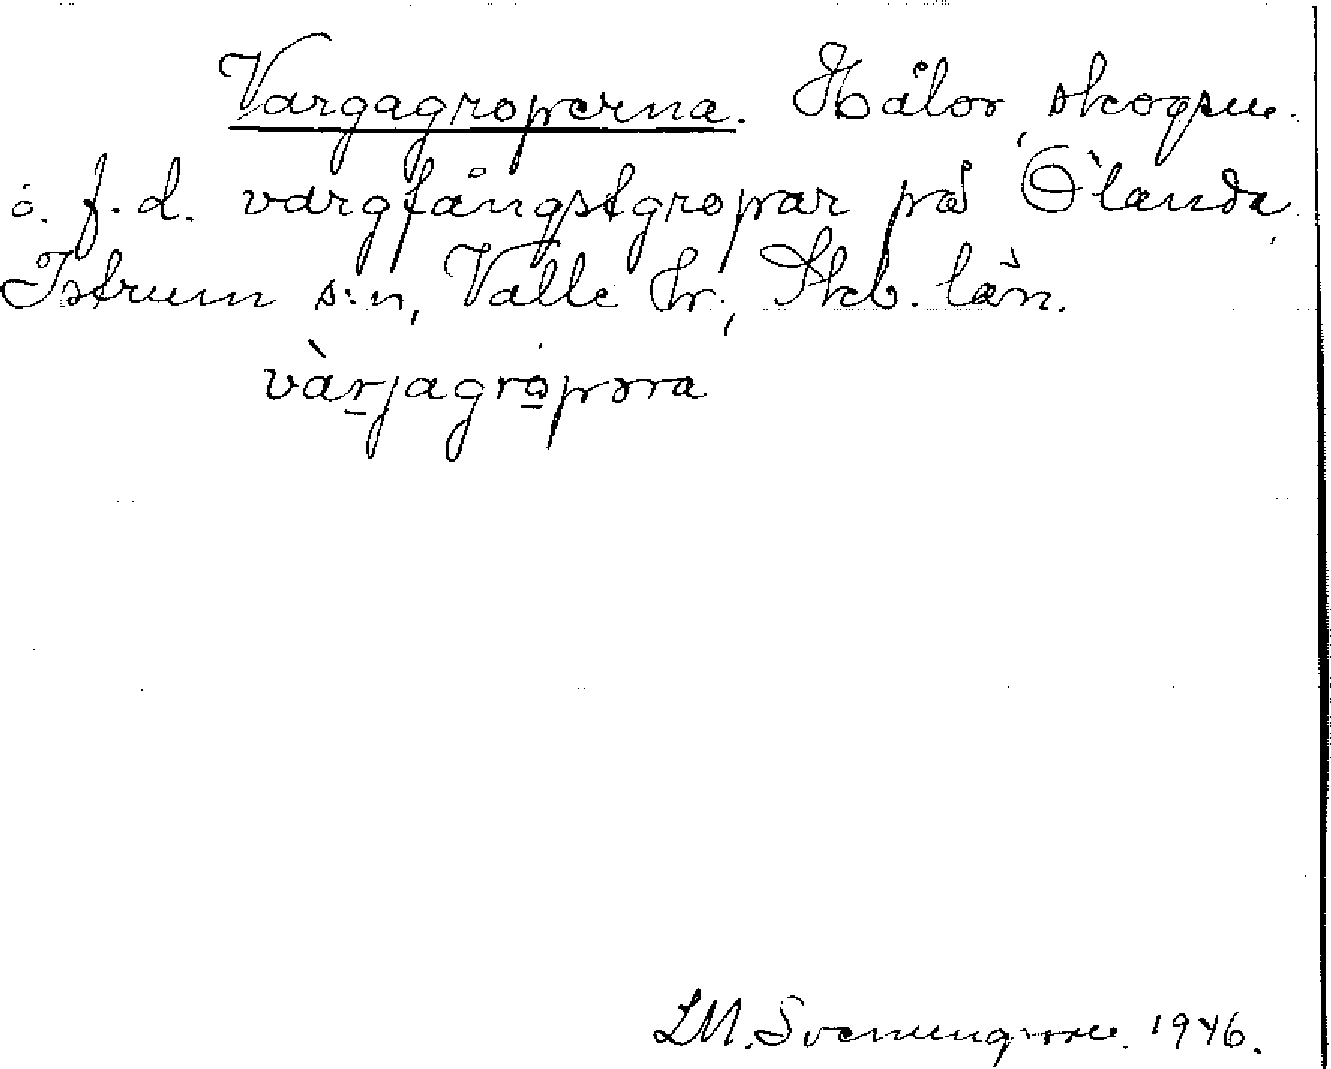 Vargagroperna. Hålor, skogsm.
o. f.d. vargfångstgropar på Ölanda,
Istrum s:n, Valle hr, Skb. län.
vàrjagròpəra
LM. Svennungsson. 1946.